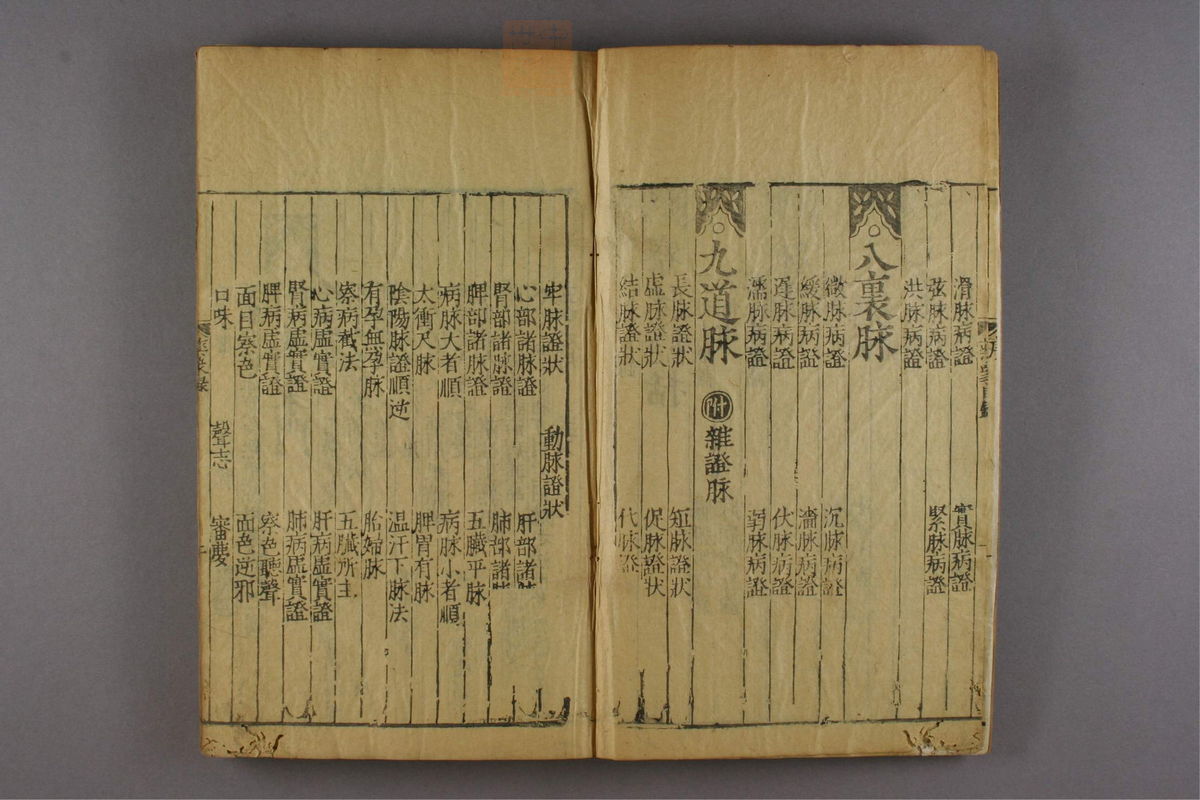 滑脉病證 實脉病證
弦脉病證 緊脉病證
洪脉病證
八裏脉
微脉病證 沉脉病證
緩脉病證 濇脉病證
遲脉病證 伏脉病證
濡脉病證 弱脉病證
九道脉 附 雜證脉
長脉證狀 短脉證狀
虛脉證狀 促脉證狀
結脉證狀 代脉證
牢脉證狀 動脉證狀
心部諸脉證 肝部諸脉
腎部諸脉證 肺部諸脉
脾部諸脉證 五臟平脉
病脉大者順 病脉小者順
太衝尺脉 脾胃有脉
陰陽脉證順逆 温汗下脉法
有孕無孕脉 胎婦脉
察病截法 五臟所主
心病虛實證 肝病虛實證
腎病虛實證 肺病虛實證
脾病虛實證 察色聽聲
面目察色 面色逆邪
口味 聲志 審慶